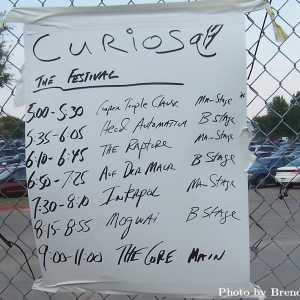 Curiosa
The Festival
5:00-5:30 Cooper Temple Clause Main-Stage *
5:35-6:05 Head Automatica B Stage
6:10-6:45 The Rapture Main-Stage
6:50-7:25 Auf Der Maur B Stage
7:30-8:10 Interpol Main-Stage
8:15-8:55 Mogwai B Stage
9:00-11:00 The Cure Main
Photo by Bren